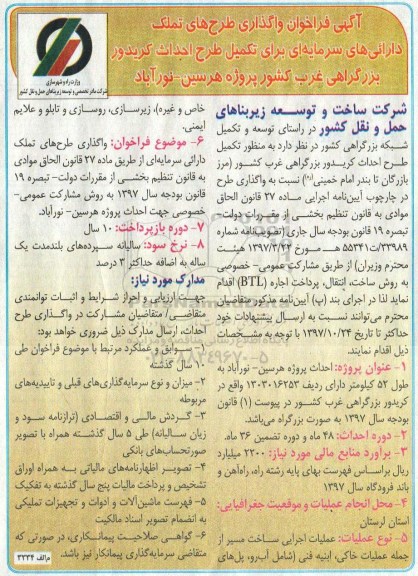 آگهی فراخوان واگذاری طرح‌های تملک
دارائی‌های سرمایه‌ای برای تکمیل طرح احداث کریدور
بزرگراهی غرب کشور پروژه هرسین-نورآباد
وزارت راه و شهرسازی
شرکت ساخت و توسعه زیربناهای
حمل و نقل کشور در راستای توسعه و تکمیل
شبکه بزرگراهی کشور در نظر دارد به منظور تکمیل
طرح احداث کریدور بزرگراهی غرب کشور (مرز
بازرگان تا بندر امام خمینی(ره)) نسبت به واگذاری طرح
در چارچوب آیین‌نامه اجرایی ماده ۲۷ قانون الحاق
موادی به قانون تنظیم بخشی از مقررات دولت-
تبصره ۱۹ قانون بودجه سال جاری (تصویب‌نامه شماره
۳۳۹۸۹/ت۵۵۳۴۱ هـ مورخ ۱۳۹۷/۳/۲۲ هیئت
محترم وزیران) از طریق مشارکت عمومی- خصوصی
به روش ساخت، انتقال، پرداخت اجاره (BTL) اقدام
نماید لذا در اجرای بند (پ) آیین‌نامه مذکور متقاضیان
محترم می‌توانند نسبت به ارسال پیشنهادات خود
حداکثر تا تاریخ ۱۳۹۷/۱۰/۲۴ با توجه به مشخصات
ذیل اقدام نمایند.
۱- عنوان پروژه: احداث پروژه هرسین- نورآباد به
طول ۵۲ کیلومتر دارای ردیف ۱۳۰۳۰۱۶۲۵۳ واقع در
کریدور بزرگراهی غرب کشور در پیوست (۱) قانون
بودجه سال ۱۳۹۷ به صورت بزرگراه می‌باشد.
۲- دوره احداث: ۴۸ ماه و دوره تضمین ۳۶ ماه.
۳- برآورد منابع مالی مورد نیاز: ۲۲۰۰ میلیارد
ریال براساس فهرست بهای پایه رشته راه، راه‌آهن و
باند فرودگاه سال ۱۳۹۷
۴- محل انجام عملیات و موقعیت جغرافیایی:
استان لرستان
۵- نوع عملیات: عملیات اجرایی ساخت مسیر از
جمله عملیات خاکی، ابنیه فنی (شامل آب‌رو، پل‌های
خاص و غیره)، زیرسازی، روسازی و تابلو و علایم
ایمنی.
۶- موضوع فراخوان: واگذاری طرح‌های تملک
دارائی سرمایه‌ای از طریق ماده ۲۷ قانون الحاق موادی
به قانون تنظیم بخشی از مقررات دولت- تبصره ۱۹
قانون بودجه سال ۱۳۹۷ به روش مشارکت عمومی-
خصوصی جهت احداث پروژه هرسین- نورآباد.
۷- دوره بازپرداخت: ۱۰ سال
۸- نرخ سود: سالیانه سپرده‌های بلندمدت یک
ساله به اضافه حداکثر ۳ درصد
مدارک مورد نیاز:
جهت ارزیابی و احراز شرایط و اثبات توانمندی
متقاضی/ متقاضیان مشارکت در واگذاری طرح
احداث، ارسال مدارک ذیل ضروری خواهد بود:
۱- سوابق و عملکرد مرتبط با موضوع فراخوان طی
۱۰ سال گذشته
۲- میزان و نوع سرمایه‌گذاری‌های قبلی و تاییدیه‌های
مربوطه
۳- گردش مالی و اقتصادی (ترازنامه سود و
زیان سالیانه) طی ۵ سال گذشته همراه با تصویر
صورتحساب‌های بانکی
۴- تصویر اظهارنامه‌های مالیاتی به همراه اوراق
تشخیص و پرداخت مالیات پنج سال گذشته به تفکیک
۵- فهرست ماشین‌آلات و ادوات و تجهیزات تملیکی
به انضمام تصویر اسناد مالکیت
۶- گواهی صلاحیت پیمانکاری، در صورتی که
متقاضی سرمایه‌گذاری پیمانکار نیز باشد.
م‌الف ۳۳۳۴